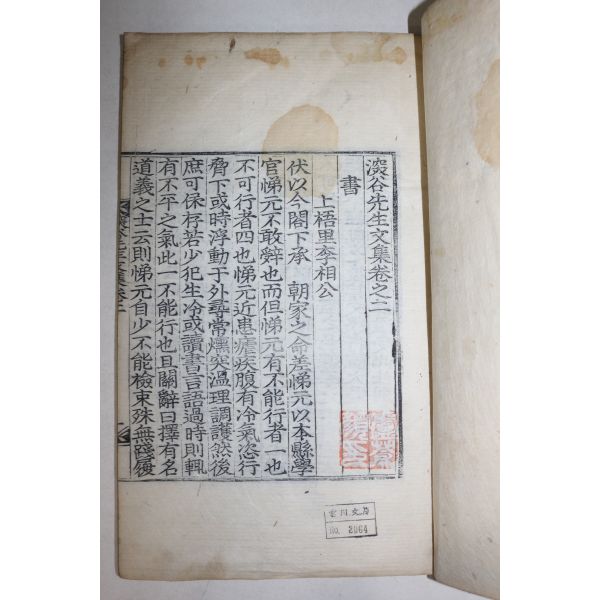 澁谷先生文集卷之二
書
上梧里李相公
伏以今閤下承 朝家之命差悌元以本縣學
官悌元不敢辭也而但悌元有不能行者一也
不可行者四也悌元近患瘧疾腹有冷氣恣行
脅下或時浮動于外尋常燠突溫理調護然後
庶可保存若少犯生冷或讀書言語過時則輒
有不平之氣此一不能行也且關辭曰擇有名
道義之士云則悌元自少不能檢束殊無踐履
谷先生文集卷二
文房
No. 2064